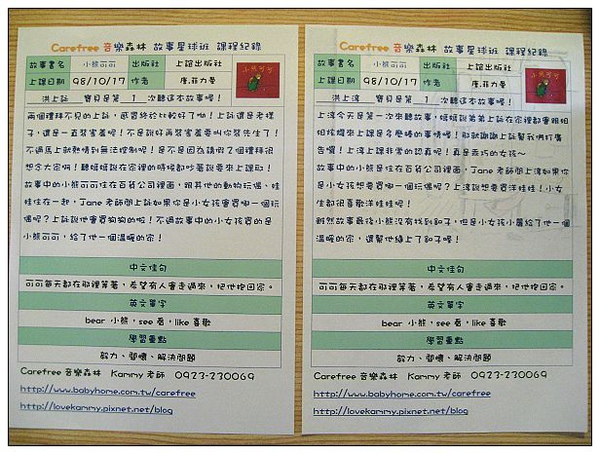 Carefree 音樂森林 故事星球班 課程紀錄
故事書名 小熊可可 出版社 上誼出版社
上課日期 98/10/17 作者 唐.菲力曼
洪上詠 寶貝是第 1 次聽這本故事喔！
兩個禮拜不見的上詠，感冒終於比較好了啦！上詠還是老樣
子，還是一直緊害羞喔！不是說好再緊害羞要叫你緊先生了！
不過馬上就熱情到無法控制呢！是不是因為請假了個禮拜很
想念大家啊！聽媽媽說在家裡的時候都吵著說要來上課啦！
故事中的小熊可可住在百貨公司裡面，跟其他的動物玩偶、娃
娃住在一起，Jane 老師問上詠如果你是小女孩會買哪一個玩
偶呢？上詠說他要買狗狗的啦！不過故事中的小女孩買的是
小熊可可，給了他一個溫暖的家！
中文佳句
可可每天都在那裡等著，希望有人會走過來，把他抱回家。
英文單字
bear 小熊，see 看，like 喜歡
學習重點
毅力、關懷、解決問題
Carefree 音樂森林 Kammy 老師 0923-230069
http://www.babyhome.com.tw/carefree
http://lovekammy.pixnet.net/blog
Carefree 音樂森林 故事星球班 課程紀錄
故事書名 小熊可可 出版社 上誼出版社
上課日期 98/10/17 作者 唐.菲力曼
洪上淯 寶貝是第 1 次聽這本故事喔！
上淯今天是第一次來聽故事，媽媽說弟弟上詠在家裡都會跟姐
姐炫耀來上課是多麼棒的事情喔！那就謝謝上詠幫我們打廣
告囉！上淯上課非常的認真呢！真是乖巧的女孩~
故事中的小熊是住在百貨公司裡面，Jane 老師問上淯如果你
是小女孩想要買哪一個玩偶呢？上淯說想要買洋娃娃！小女
生都很喜歡洋娃娃呢！
雖然故事最後小熊沒有找到釦子，但是小女孩小麗給了他一個
溫暖的家，還幫他縫上了釦子喔！
中文佳句
可可每天都在那裡等著，希望有人會走過來，把他抱回家。
英文單字
bear 小熊，see 看，like 喜歡
學習重點
毅力、關懷、解決問題
Carefree 音樂森林 Kammy 老師 0923-230069
http://www.babyhome.com.tw/carefree
http://lovekammy.pixnet.net/blog